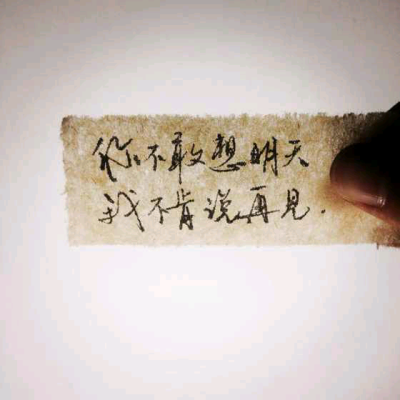 你不敢想明天
我不肯说再见.